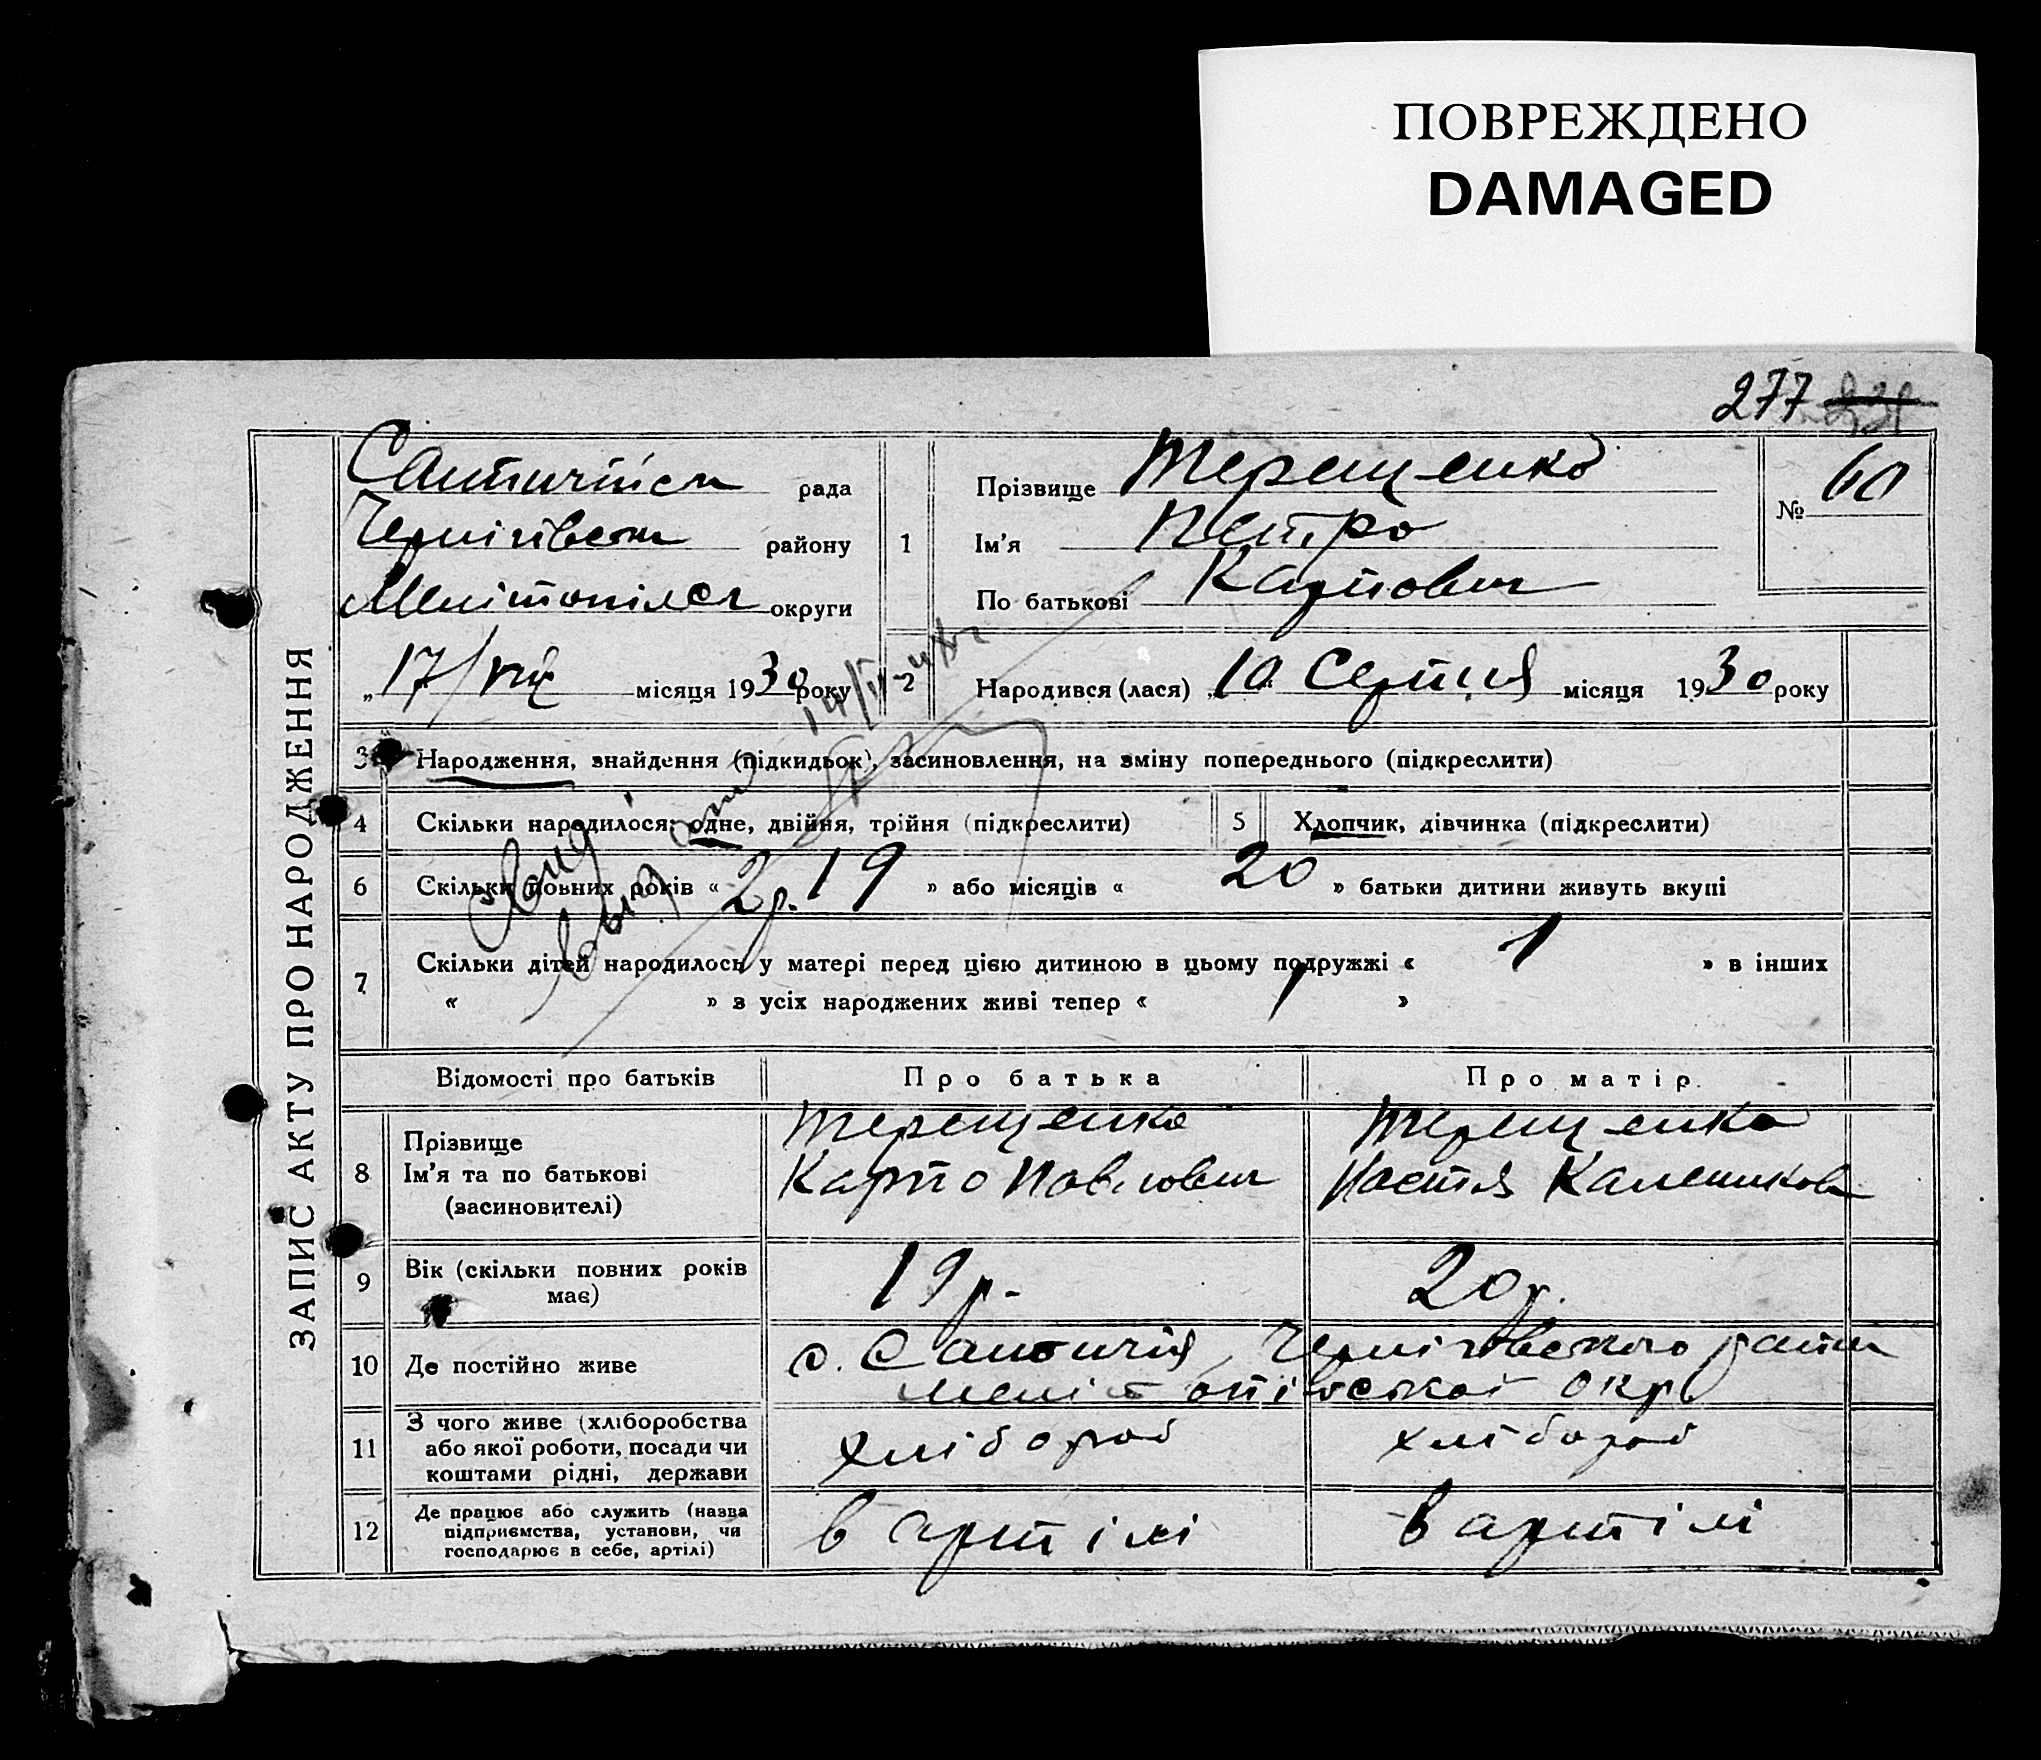 ПОВРЕЖДЕНО
DAMAGED
277
ЗАПИС АКТУ ПРО НАРОДЖЕННЯ
рада
Чернігівськ району
Мелітопільськ округи
„17/VIII місяця 1930 року
1
Прізвище Терещенко
Ім'я Петро
По батькові Карпович
№ 60
2
Народився (лася) „10 Серпня місяця 1930 року
3 Народження, знайдення (підкидьок), засиновлення, на зміну попереднього (підкреслити)
4 Скільки народилося: одне, двійня, трійня (підкреслити)
5 Хлопчик, дівчинка (підкреслити)
6 Скільки повних років « 2р. 19 » або місяців « 20 » батьки дитини живуть вкупі
7 Скільки дітей народилось у матері перед цією дитиною в цьому подружжі « 1 » в інших
« » з усіх народжених живі тепер « 1 »
Відомості про батьків Про батька Про матір
8 Прізвище
Ім'я та по батькові
(засиновителі)
Терещенко
Карпо Павлович
Терещенко
Настя
9 Вік (скільки повних років
має)
19р.
20р.
10 Де постійно живе
с. Чернігівського району
Мелітопівської окр.
11 З чого живе (хліборобства
або якої роботи, посади чи
коштами рідні, держави
хлібороб
хлібороб
12 Де працює або служить (назва
підприємства, установи, чи
господарює в себе, артілі)
в артілі
в артілі